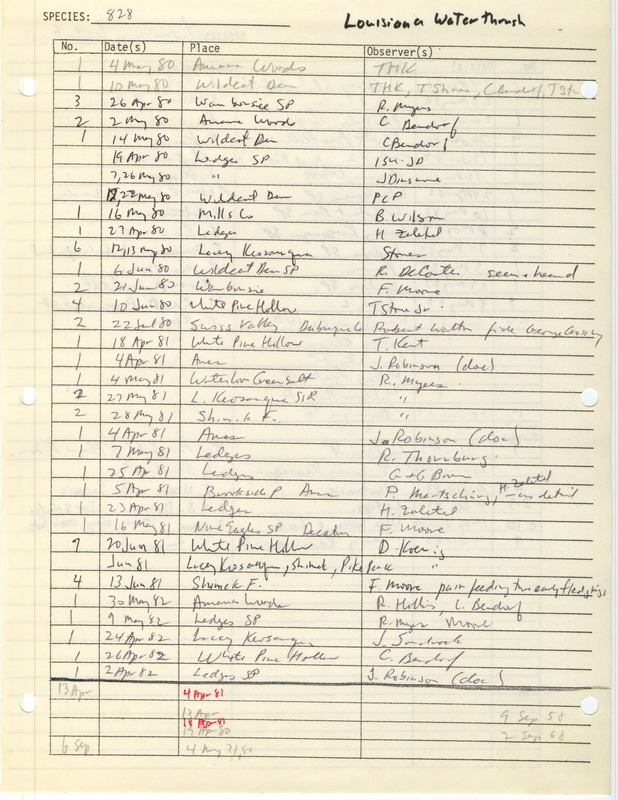 SPECIES: 828 Louisiana Waterthrush
No. Date(s) Place Observer(s)
1 4 May 80 Amana Woods THK
1 10 May 80 Wildcat Den THK, TShires, C Bendorf, T
3 26 Apr 80 Waubonsie SP R. Myers
2 2 May 80 Amana Woods C Bendorf
1 14 May 80 Wildcat Den C Bendorf
19 Apr 80 Ledges SP JD
7,26 May 80 " J Dinsmore
22 May 80 Wildcat Den PCP
1 16 May 80 Mills Co B. Wilson
1 27 Apr 80 Ledges H Zaletel
6 12,13 May 80 Lacey Keosauqua Stones
1 6 Jun 80 Wildcat Den SP R. DeCoster seen + heard
2 21 Jun 80 Waubonsie F. Moore
4 10 Jun 80 White Pine Hollow T Stone Jr.
2 22 Jul 80 Swiss Valley Dubuque Co Robert Walton fide George Crossley
1 18 Apr 81 White Pine Hollow T. Kent
1 4 Apr 81 Ames J. Robinson (doc)
1 4 May 81 Waterloo Greenbelt R. Myers
2 27 May 81 L. Keosauqua S.P. "
2 28 May 81 Shimek F. "
1 4 Apr 81 Ames J. Robinson (doc)
1 7 May 81 Ledges R. Thornburg
1 25 Apr 81 Ledges G + G Brown
1 5 Apr 81 Brookside P Ames P. Martsching, H. Zaletel - no detail
1 23 Apr 81 Ledges H. Zaletel
1 16 May 81 Nine Eagles SP Decatur F. Moore
9 20 Jun 81 White Pine Hollow D. Koenig
Jun 81 Lacey Keosauqua, Shimek, Pikes Peak "
4 13 Jun 81 Shimek F. F. Moore pair feeding two early fledglings
1 30 May 82 Amana Woods R. Hollis, C. Bendorf
1 9 May 82 Ledges SP R. Myers Moore
1 24 Apr 82 Lacey Keosauqua J.
1 26 Apr 82 White Pine Hollow C. Bendorf
1 2 Apr 82 Ledges SP J. Robinson (doc)
13 Apr 4 Apr 81
13 Apr 9 Sep 58
18 Apr 81
19 Apr 80 2 Sep 68
6 Sep 4 May 71,80